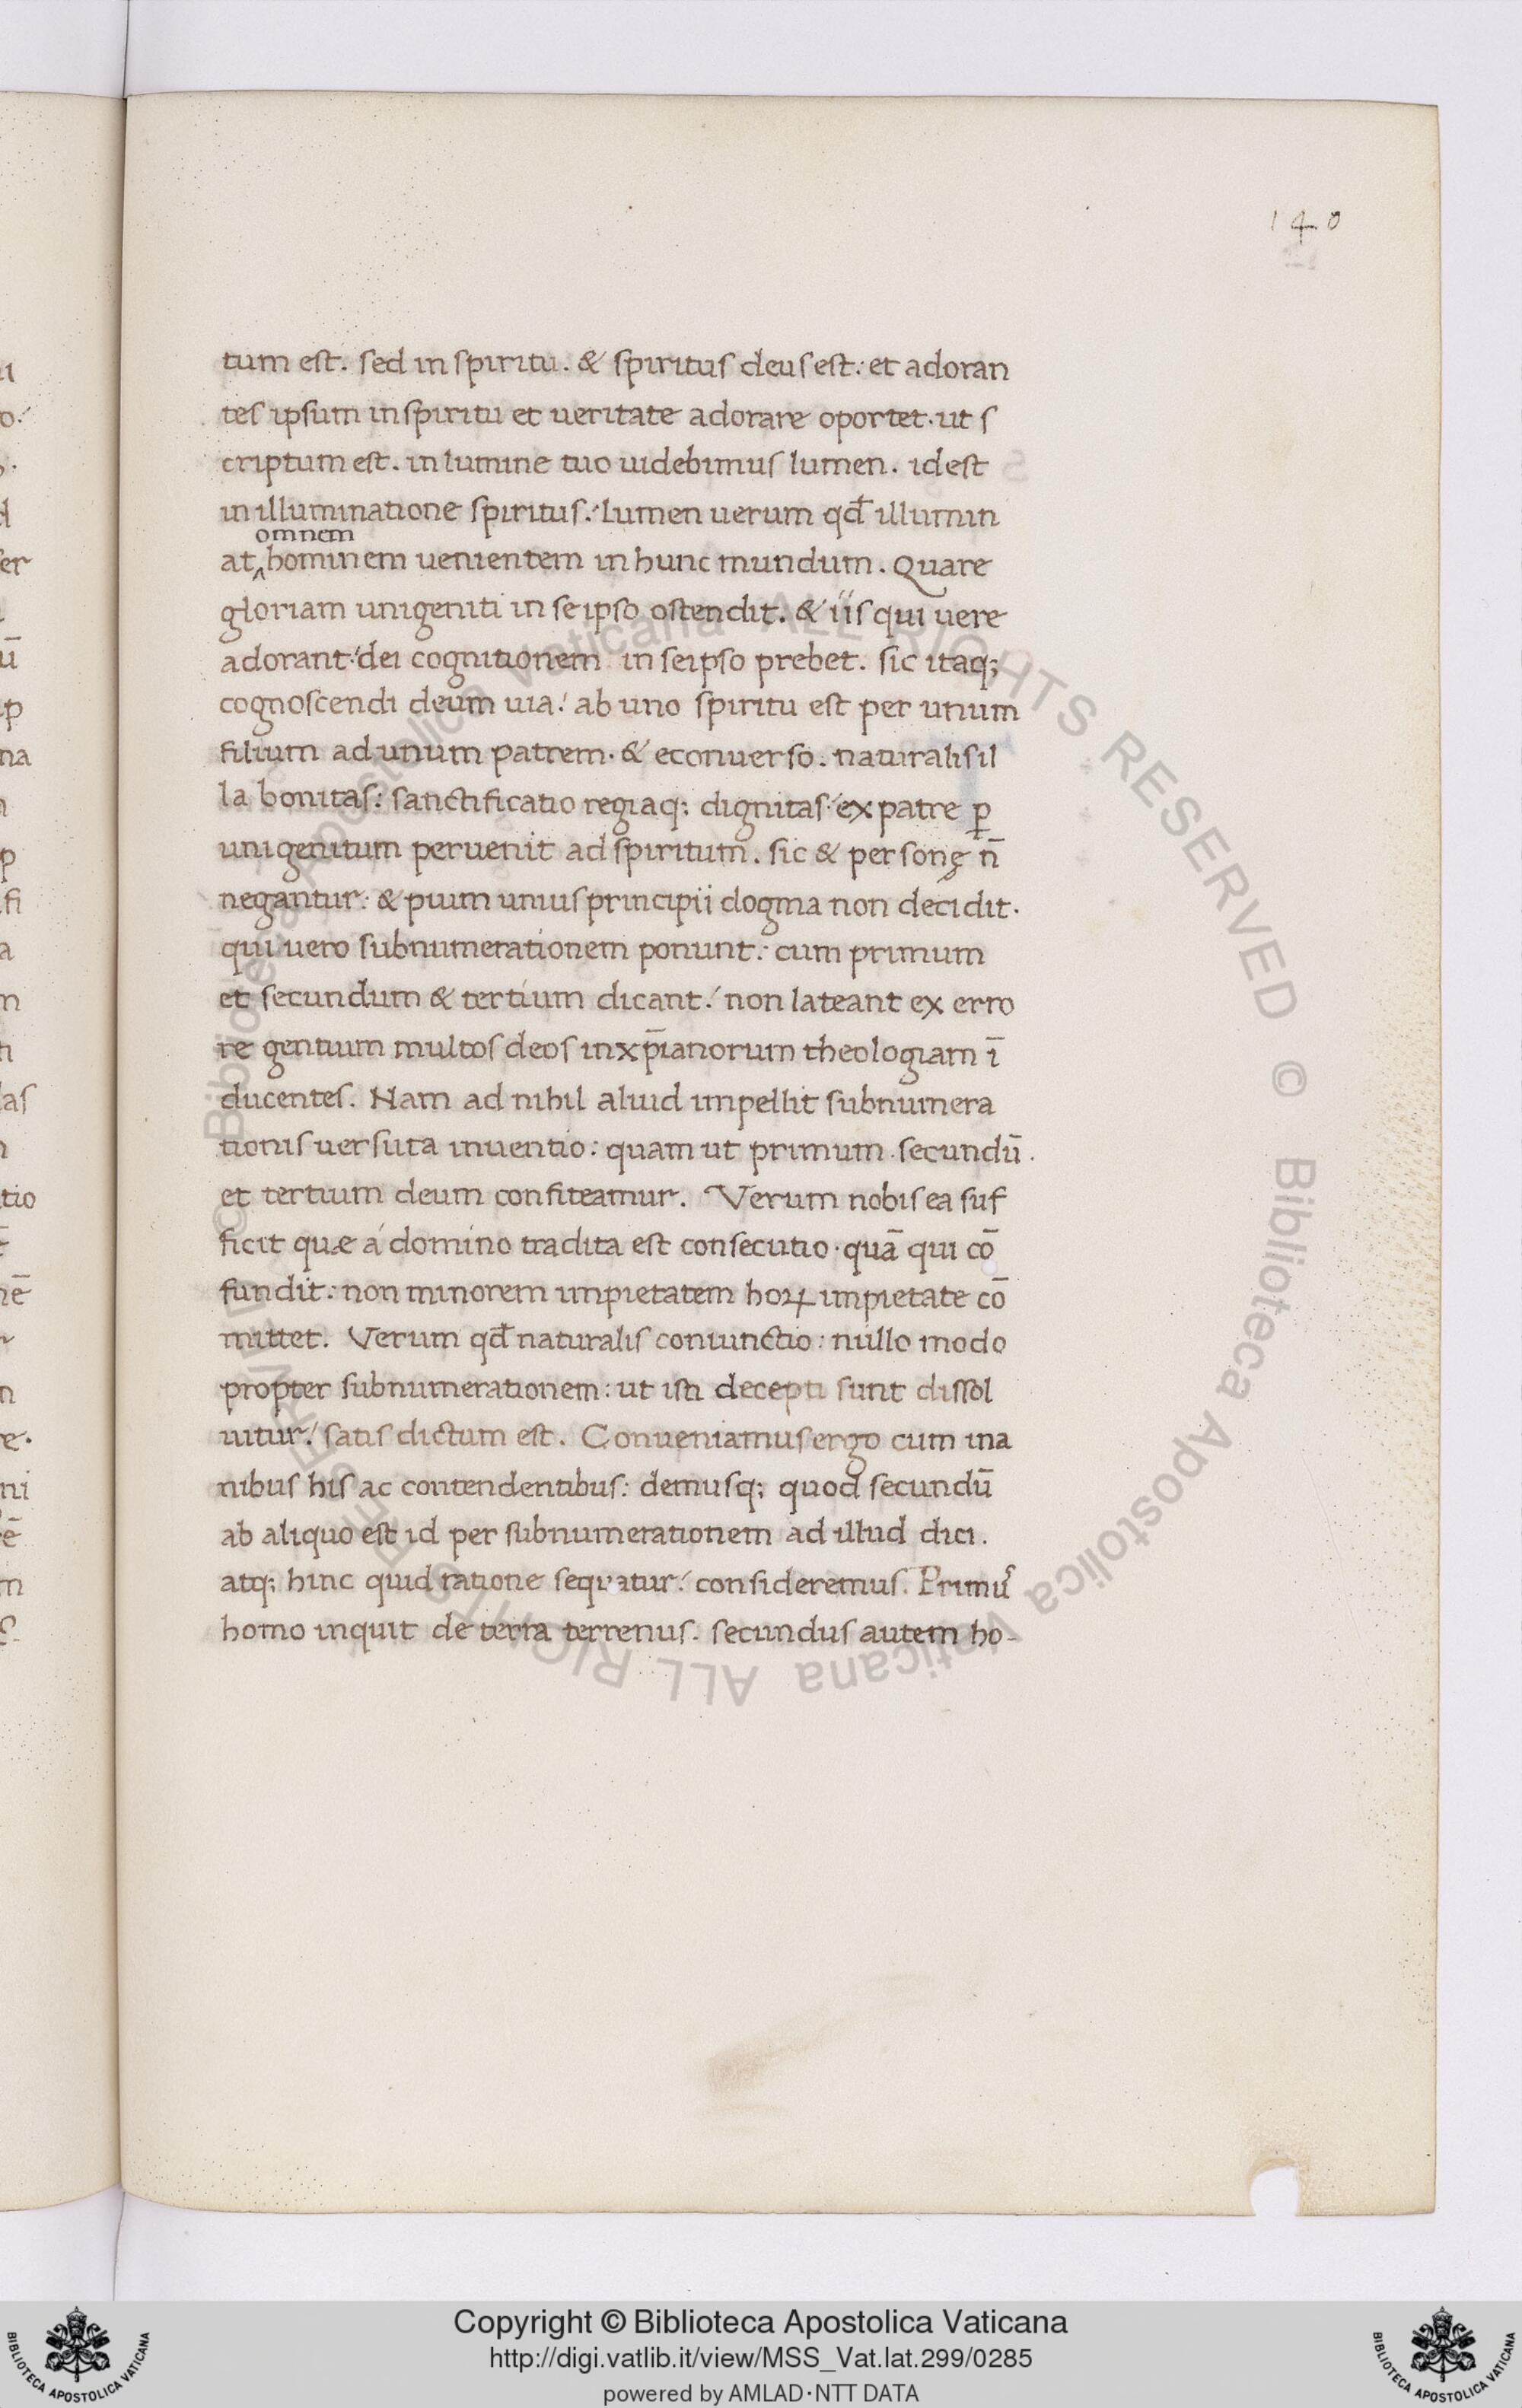 140
tum est. sed in spiritu. & spiritus deus est: et adoran
tes ipsum in spiritu et ueritate adorare oportet. ut s
criptum est. in lumine tuo uidebimus lumen. idest
in illuminatione spiritus: lumen uerum qd̄ illumin
omnem
at‸hominem uenientem in hunc mundum. Quare
gloriam unigeniti in seipso ostendit. & iis qui uere
adorant: dei cognitionem in seipso prebet. sic itaq;
cognoscendi deum uia: ab uno spiritu est per unum
filium ad unum patrem. & econuerso. naturalis il
la bonitas: sanctificatio regiaq; dignitas: ex patre ꝑ
unigenitum peruenit ad spiritum. sic & personę n̄
negantur: & pium unius principii dogma non decidit.
qui uero subnumerationem ponunt: cum primum
et secundum & tertium dicant: non lateant ex erro
re gentium multos deos in xp̄ianorum theologiam ī
ducentes. Nam ad nihil aliud impellit subnumera
tionis uersuta inuentio: quam ut primum. secundū.
et tertium deum confiteamur. Verum nobis ea suf
ficit quæ á domino tradita est consecutio. quā qui cō
fundit: non minorem impietatem hoꝝ impietate cō
mittet. Verum qd̄ naturalis coniunctio: nullo modo
propter subnumerationem: ut isti decepti sunt dissol
uitur: satis dictum est. Conueniamus ergo cum ina
nibus his ac contendentibus: demusq; quod secundū
ab aliquo est id per subnumerationem ad illud dici.
atq; hinc quid ratione sequatur: consideremus. Primū
homo inquit de terra terrenus. secundus autem ho-
Copyright © Biblioteca Apostolica Vaticana
http://digi.vatlib.it/view/MSS_Vat.lat.299/0285
powered by AMLAD·NTT DATA